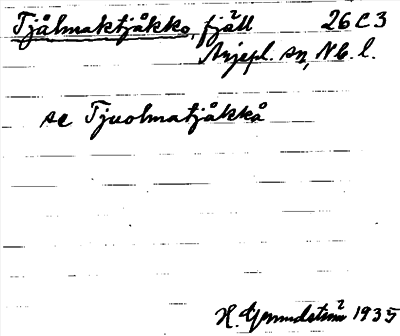 Tjålmaktjåkko, fjäll 26 C 3
Arjepl. sn, Nb. l.
se Tjuolmatjåkkå
H. Grundström 1935